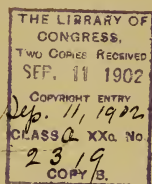 THE LIBRARY OF
CONGRESS,
TWO COPIES RECEIVED
SEP. 11 1902
COPYRIGHT ENTRY
Sep. 11, 1902
CLASS a XXc. No.
2319
COPY B.